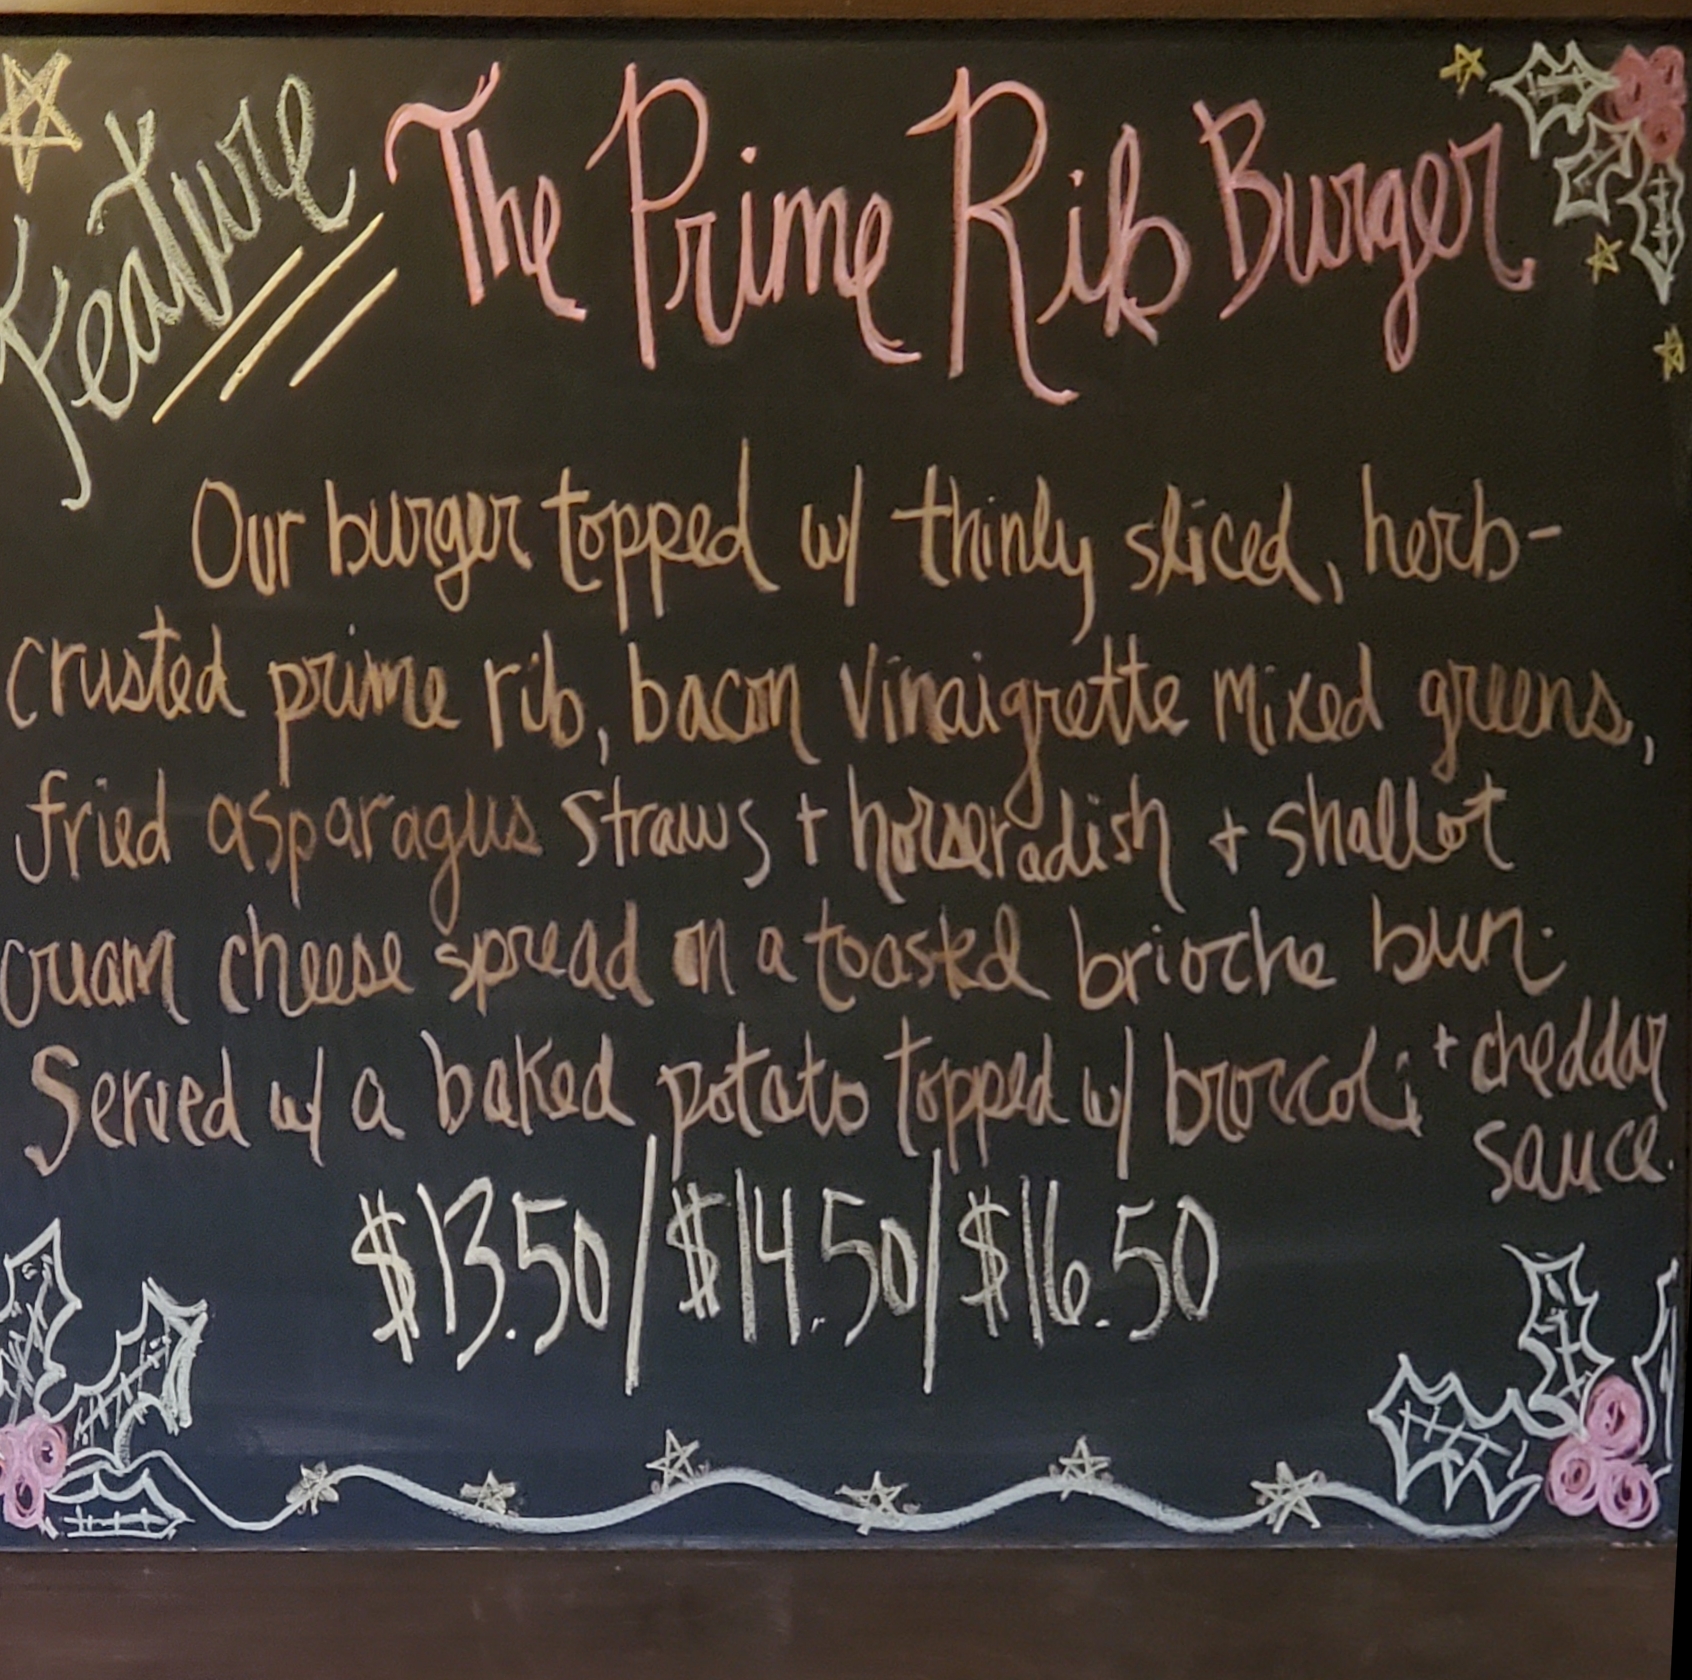 Feature
The Prime Rib Burger
Our burger topped w/ thinly sliced, herb-
crusted prime rib, bacon vinaigrette mixed greens,
fried asparagus straws + horseradish + shallot
cream cheese spread on a toasted brioche bun.
Served w/ a baked potato topped w/ broccoli + cheddar
sauce.
$13.50/$14.50/$16.50